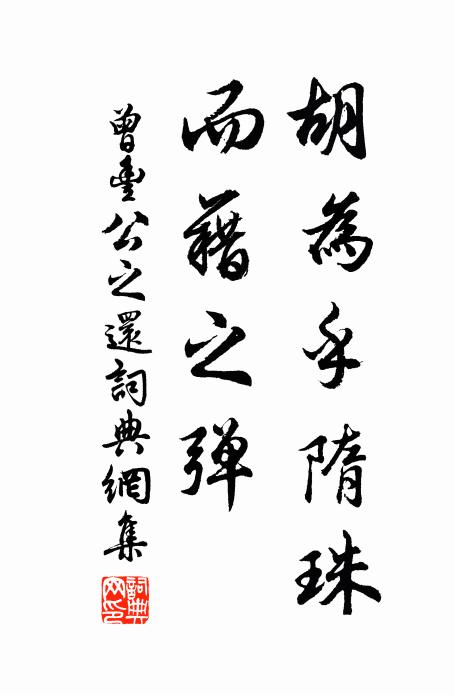 胡為乎隋珠
而藉之彈
曾豐公之還詞典網集
詞典
網印